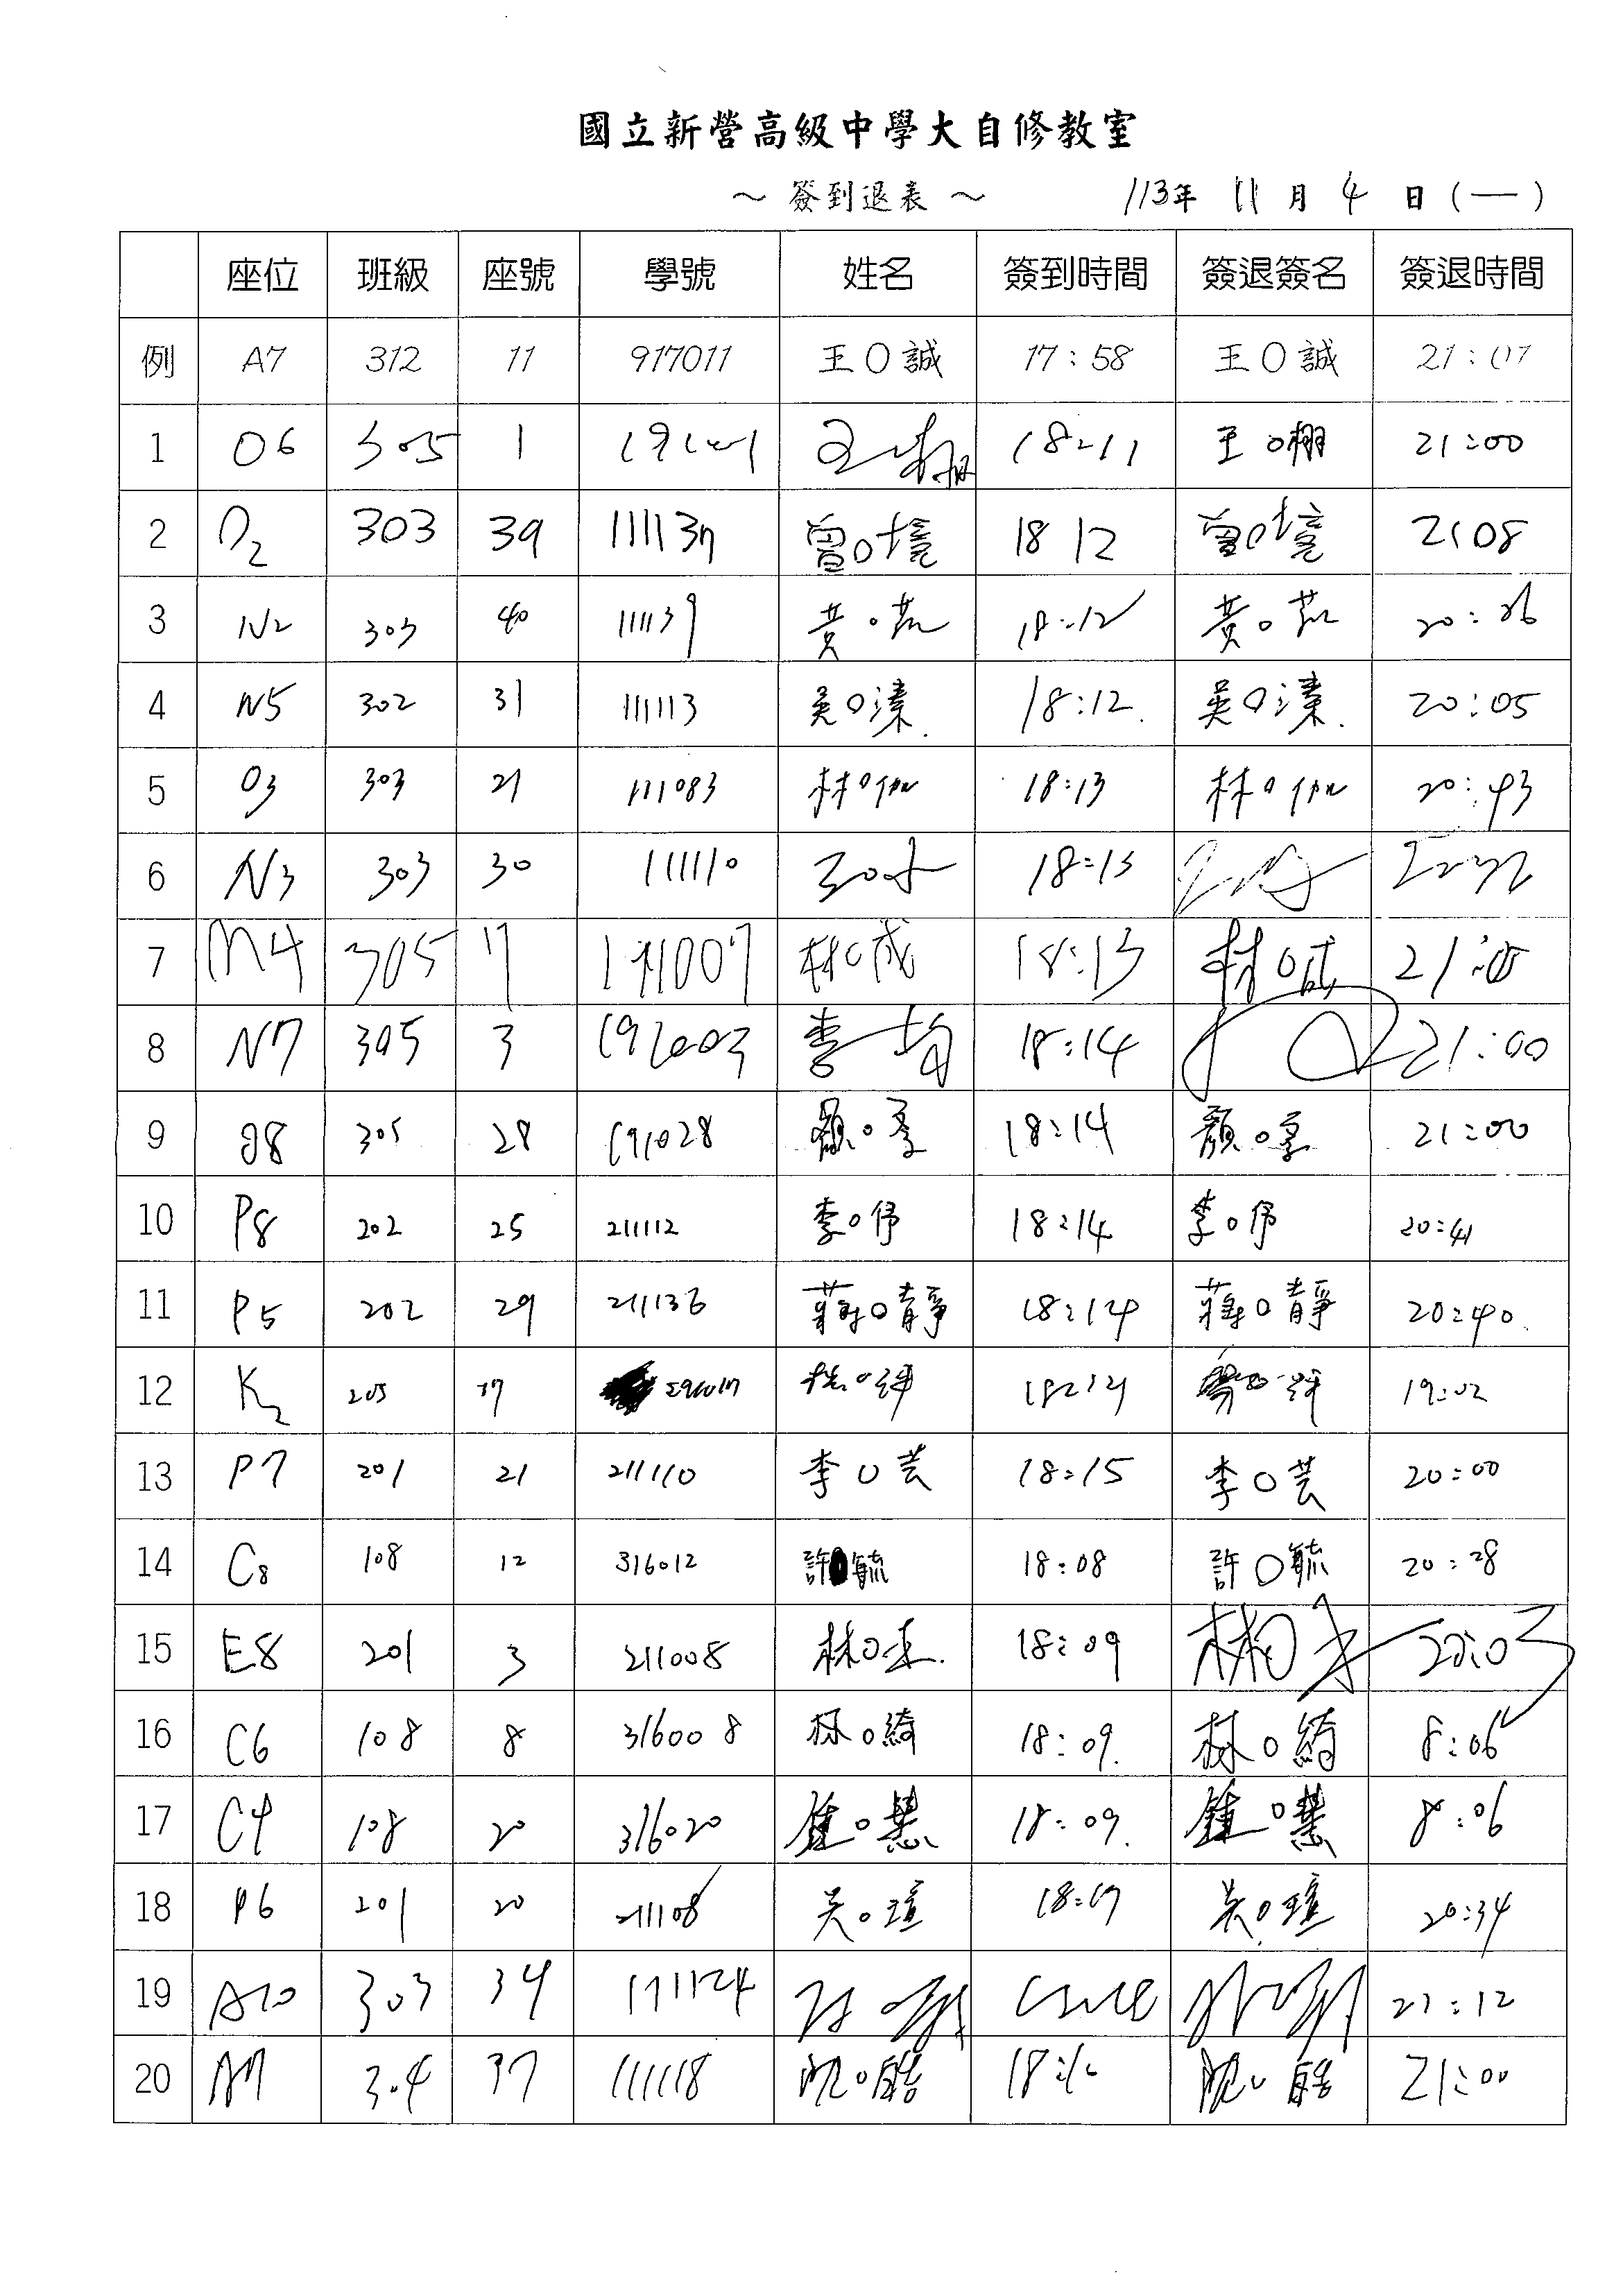 國立新營高級中學大自修教室
～ 簽到退表 ～ 113年 11月 4日(一)
座位 班級 座號 學號 姓名 簽到時間 簽退簽名 簽退時間
例 A7 312 11 917011 王O誠 17:58 王O誠 21:07
1 O6 305 1 18:11 王O棚 21:00
2 O2 303 39 曾O境 18 12 曾O境 2108
3 N2 303 40 111139 黃O 18:12 黃O
4 N5 302 31 111113 吳O溱 18:12 吳O溱 20:05
5 O3 303 21 111083 林O 18:13 林O 20:43
6 N3 303 30 111110 18:13
7 M4 305 7 191007 林O成 18:13 林O成
8 N7 305 3 李 18:14 21:00
9 J8 305 28 191028 顏O 18:14 顏O 21:00
10 P8 202 25 211112 李O伃 18:14 李O伃 20:41
11 P5 202 29 211136 蔣O靜 18:14 蔣O靜 20:40
12 K2 205 17 19:02
13 P7 201 21 211110 李O芸 18:15 李O芸 20:00
14 C8 108 12 316012 許O毓 18:08 許O毓 20:28
15 E8 201 3 211008 林O 18:09 林O
16 C6 108 8 316008 林O綺 18:09 林O綺 8:06
17 C4 108 20 316020 鍾O慧 18:09 鍾O慧 8:06
18 P6 201 20 211108 吳O瑄 吳O瑄 20:34
19 A10 303 34 111124 21:12
20 304 37 111118 O皓 O皓 21:00